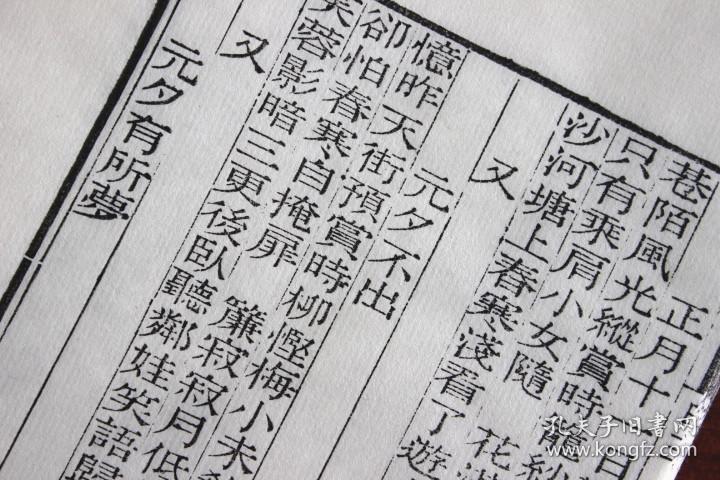 正月十
巷陌風光縱賞時籠紗
只有乘肩小女隨 花滿
沙河塘上春寒淺看了遊
又
元夕不出
憶昨天街預賞時柳慳梅小未
卻怕春寒自掩扉 簾寂寂月低
芙蓉影暗三更後臥聽鄰娃笑語歸
又
元夕有所夢
孔夫子旧書网
www.kongfz.com